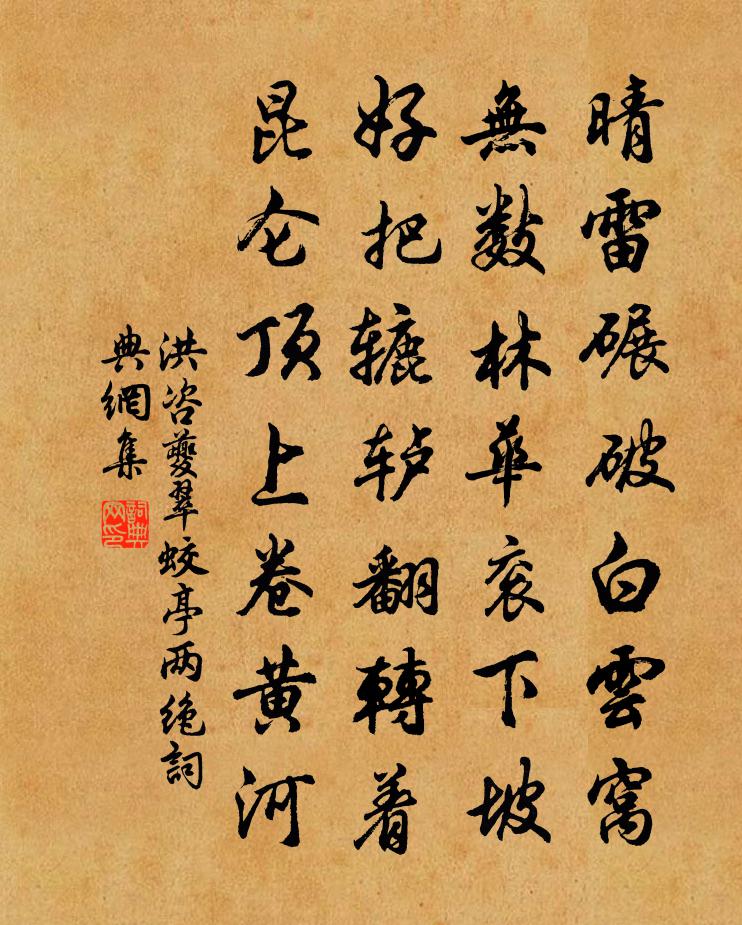 晴雷碾破白雲窩
無數林華衮下坡
好把辘轳翻轉着
昆仑顶上卷黄河
洪咨夔翠蛟亭两绝詞
典網集
詞典網印